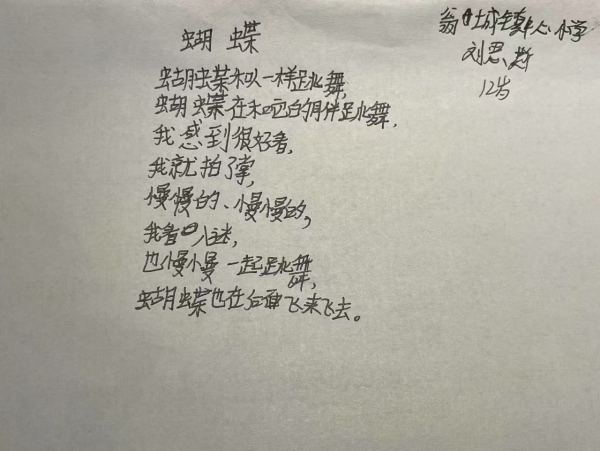 蝴蝶
翁城镇中心小学
刘思彤
12岁
蝴蝶和以一样跳舞,
蝴蝶在和它的伴跳舞,
我感到很好看,
我就拍了掌,
慢慢的、慢慢的,
我看入迷,
也慢慢一起跳舞,
蝴蝶也在后面飞来飞去。